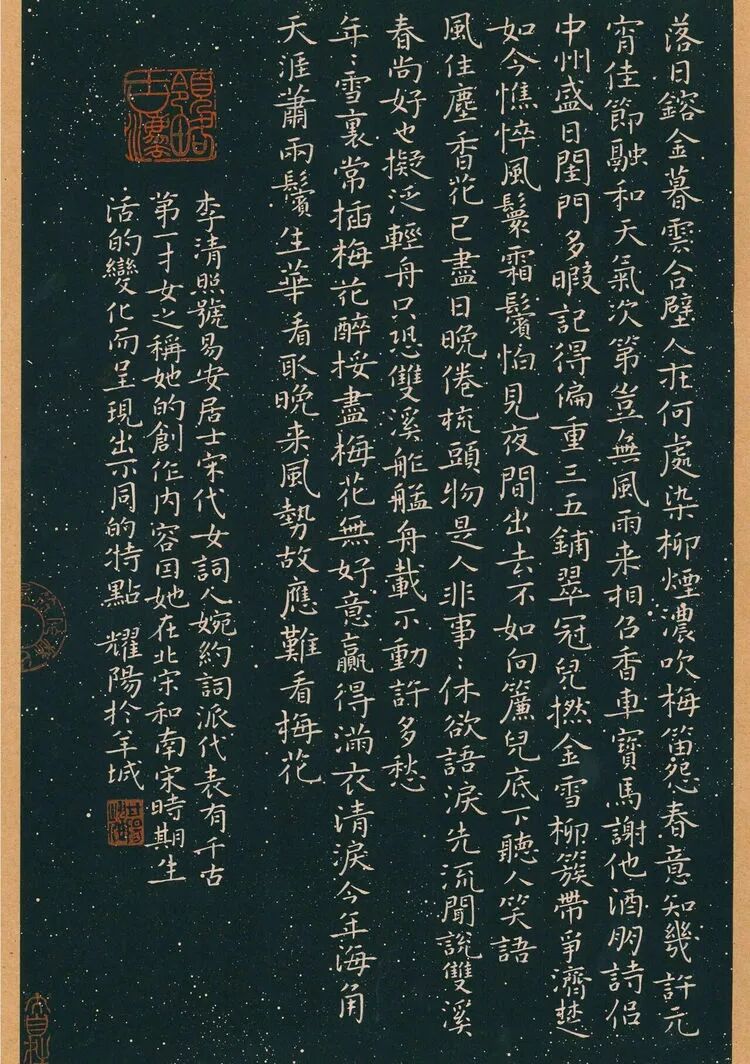 落日鎔金暮雲合璧人在何處染柳煙濃吹梅笛怨春意知幾許元
宵佳節融和天氣次第豈無風雨来相召香車寶馬謝他酒朋詩侶
中州盛日閨門多暇記得偏重三五鋪翠冠兒撚金雪柳簇帶爭濟楚
如今憔悴風鬟霜鬢怕見夜間出去不如向簾兒底下聽人笑語
風住塵香花已盡日晚倦梳頭物是人非事：休欲語淚先流聞說雙溪
春尚好也擬泛輕舟只恐雙溪舴艋舟載不動許多愁
年：雪裏常插梅花醉挼盡梅花無好意贏得滿衣清淚今年海角
天涯蕭雨鬢生華看取晚来風勢故應難看梅花
李清照號易安居士宋代女詞人婉約詞派代表有千古
第一才女之稱她的創作内容因她在北宋和南宋時期生
活的變化而呈現出不同的特點 耀陽於羊城